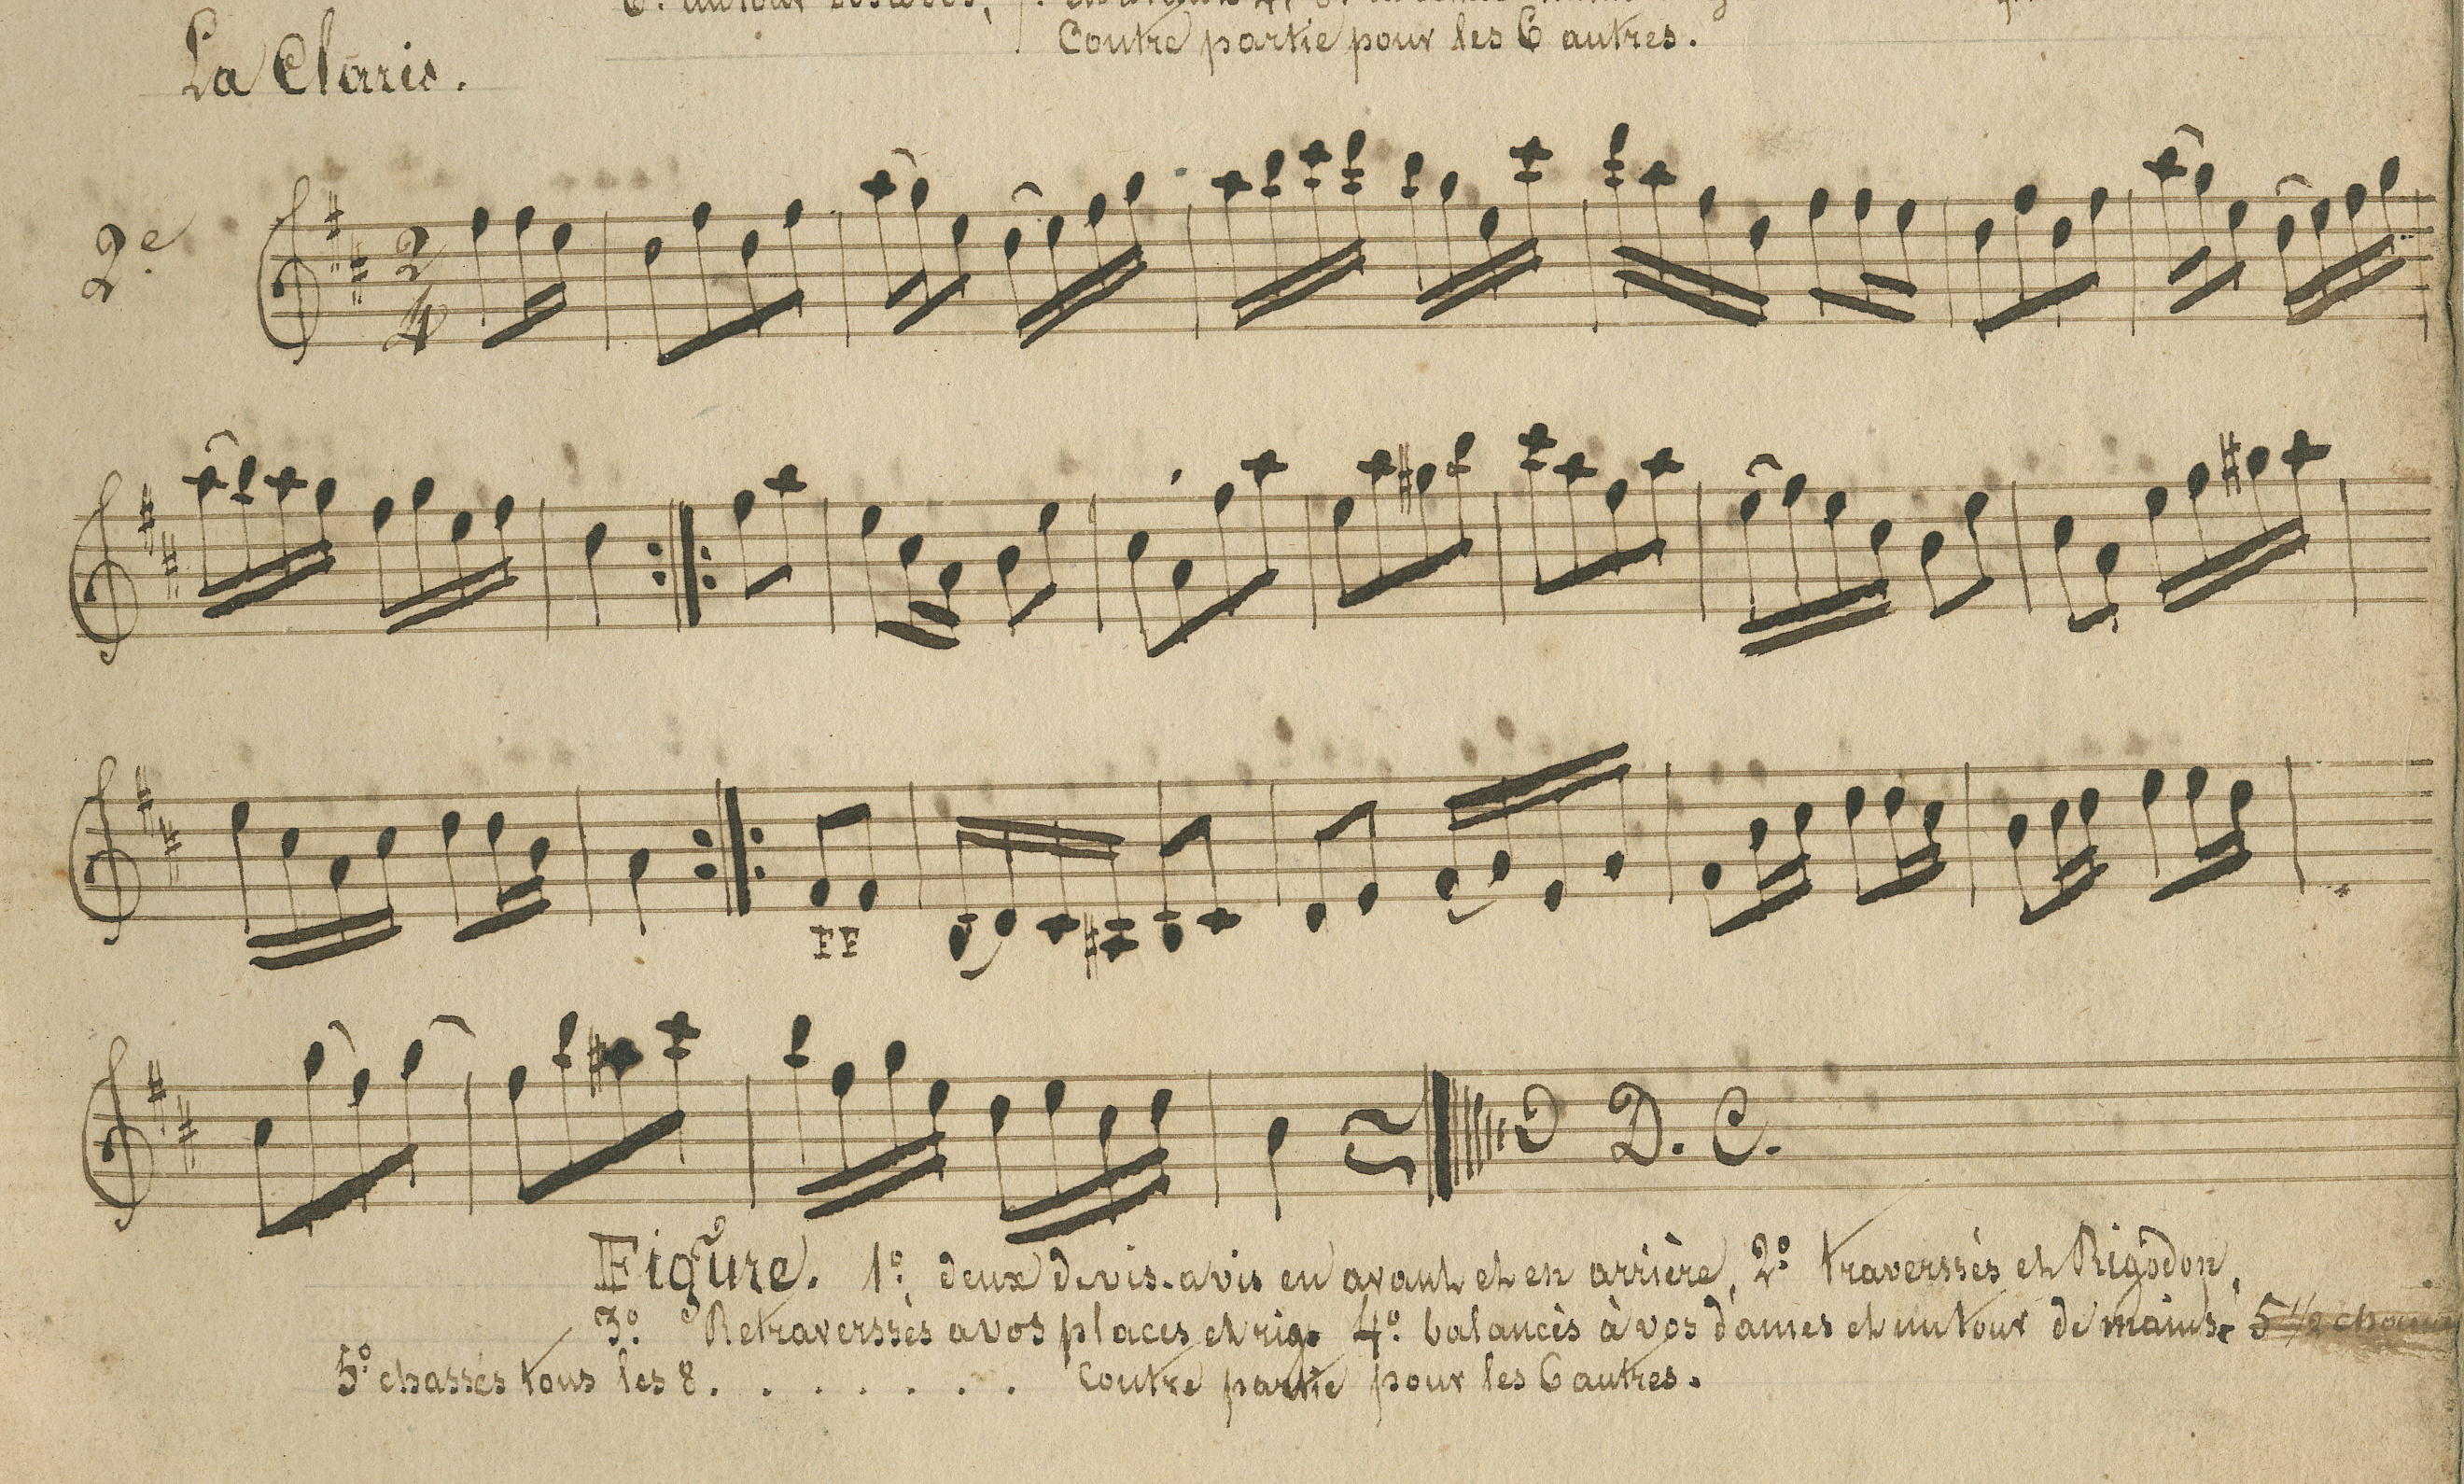 Contre partie pour les 6 autres.
La Claris.
2.e
2
4
FF
D. C.
Figure. 1.o deux de vis-a vis en avant et en arrière, 2.o traverssés et Rigodon,
3.o Retraverssés a vos places et rig. 4.o balancés à vos dames et un tour de mains. 5 1/2 chaine
5.o chassés tous les 8. . . . . . . . Contre partie pour les 6 autres.